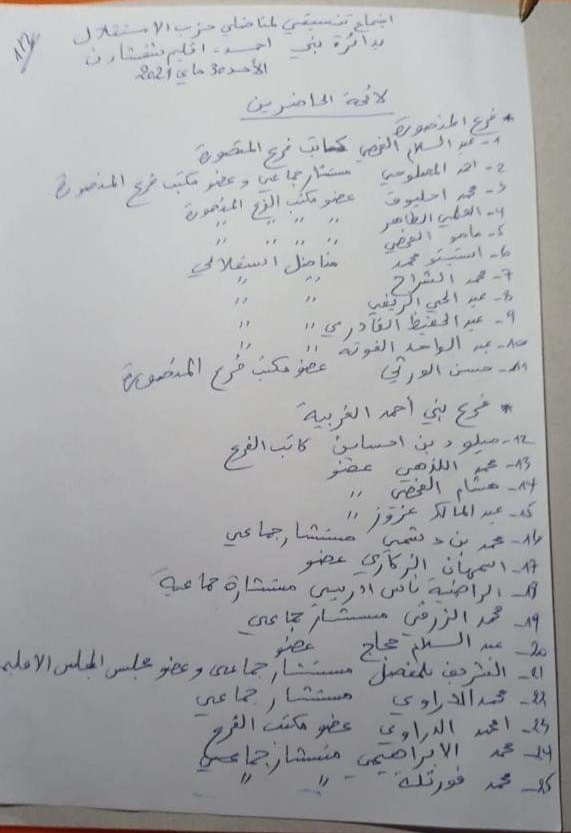 1/2
اجتماع تنسيقي لمناضلي حزب الاستقلال
بدائرة بني احمد - اقليم شفشاون
الأحد 30 ماي 2021
لائحة الحاضرين
* فرع المنصورة
1- عبد السلام الفحصي كاتب فرع المنصورة
2- احمد المصلوحي مستشار جماعي وعضو مكتب فرع المنصورة
3- محمد احليوت عضو مكتب الفرع المنصورة
4- العلمي الطاهر " " " "
5- ماحو الفحصي " " " "
6- استيتو محمد مناضل استقلالي
7- محمد الشراح "
8- عبد الحي الريفي " "
9- عبد الحفيظ القادري " "
10- عبد الواحد الفوته " "
11- حسن الورثي عضو مكتب فرع المنصورة
* فرع بني أحمد الغربية
12- ميلود بن احساين كاتب الفرع
13- محمد اللذهي عضو
14- هشام الفحصي "
15- عبد المالك عزوز "
16- محمد بن دحمي مستشار جماعي
17- اسمهان الزكاري عضو
18- الراضية ناس ادريسي مستشارة جماعية
19- محمد الزرقي مستشار جماعي
20- عبد السلام حجاج عضو
21- الشريف بلمفضل مستشار جماعي وعضو مجلس المجلس الاقليم
22- محمد الدراوي مستشار جماعي
23- احمد الدراوي عضو مكتب الفرع
24- محمد الابراهيمي مستشار جماعي
25- محمد فورتلة " "